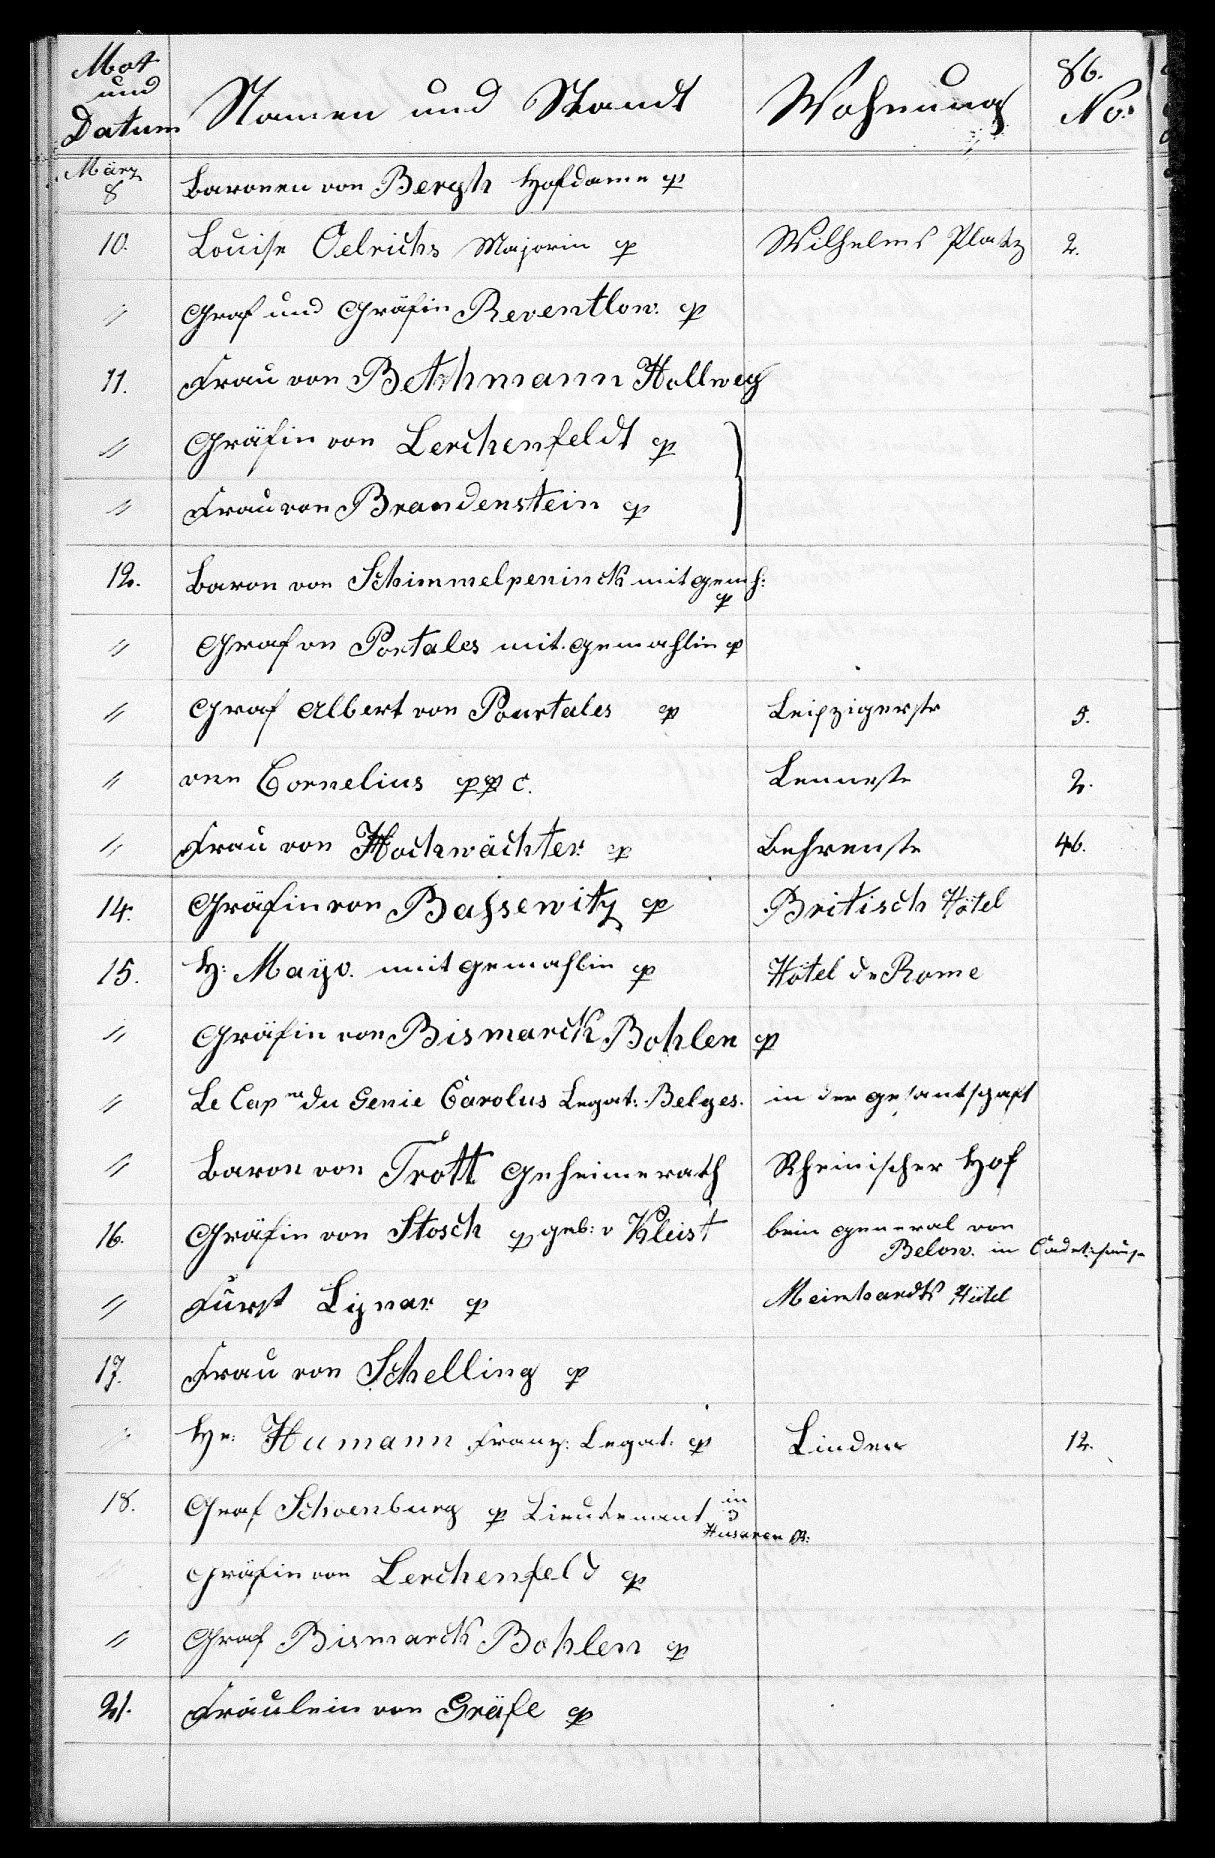 86.
Mot und Datum Namen und Standt Wohnung No:
März 8 Baronen von Bergh Hofdame p
10. Louise Oelrichs Majorin p Wilhelms Platz 2.
" Graf und Gräfin Reventlow. p
11. Frau von Bethmann Hollweg
" Gräfin von Lerchenfeldt p
" Frau von Brandenstein p
12. Baron von Schimmelpeninck mit gemh: p
" Graf von Portales mit gemahlin p
" Graf Albert von Pourtales p Leipzigerstr 5.
" von Cornelius p p c. Lennestr 2.
" Frau von Hochwächter p Behrenstr 46.
14. Gräfin von Bassewitz p Britisch Hôtel
15. H: Mayo. mit gemahlin p Hôtel de Rome
" Gräfin von Bismarck Bohlen p
" Le Cap ne du Genie Carolus Legat: Belges. in der gesantschaft
" Baron von Trott Geheimerath Rheinischer Hof
16. Gräfin von Stosch p geb: v Kleist beim general von
Below. in Cadetzhause
" Fürst Lynar p Meinhardts Hôtel
17. Frau von Schelling p
" Hr: Humann Franz: Legat: p Linden 12.
18. Graf Schoenburg p Lieutenant in
Husaren R:
Gräfin von Lerchenfeld p
" Graf Bismarck Bohlen p
21. Fräulein von Gräfe p